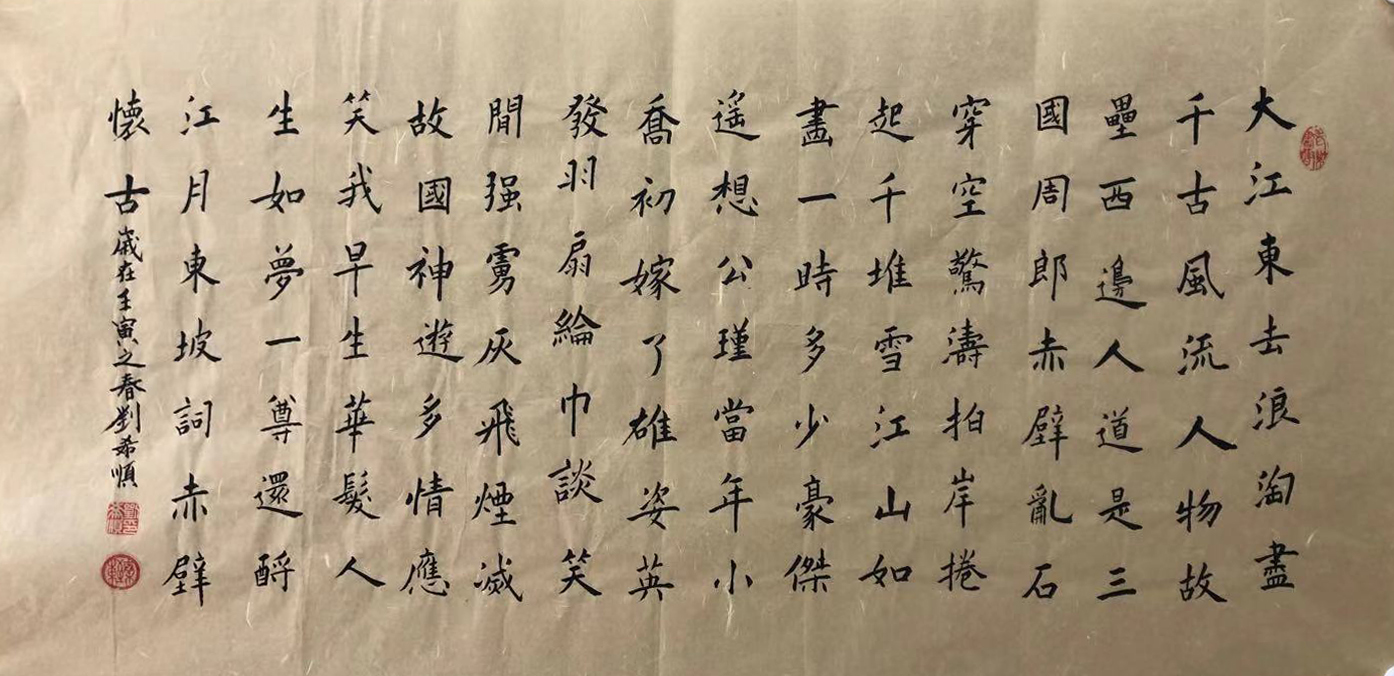 大江東去浪淘盡
千古風流人物故
壘西邊人道是三
國周郎赤壁亂石
穿空驚濤拍岸捲
起千堆雪江山如
畫一時多少豪傑
遥想公瑾當年小
喬初嫁了雄姿英
發羽扇綸巾談笑
間强虜灰飛煙滅
故國神遊多情應
笑我早生華髮人
生如夢一尊還酹
江月東坡詞赤壁
懷古歲在壬寅之春劉希順